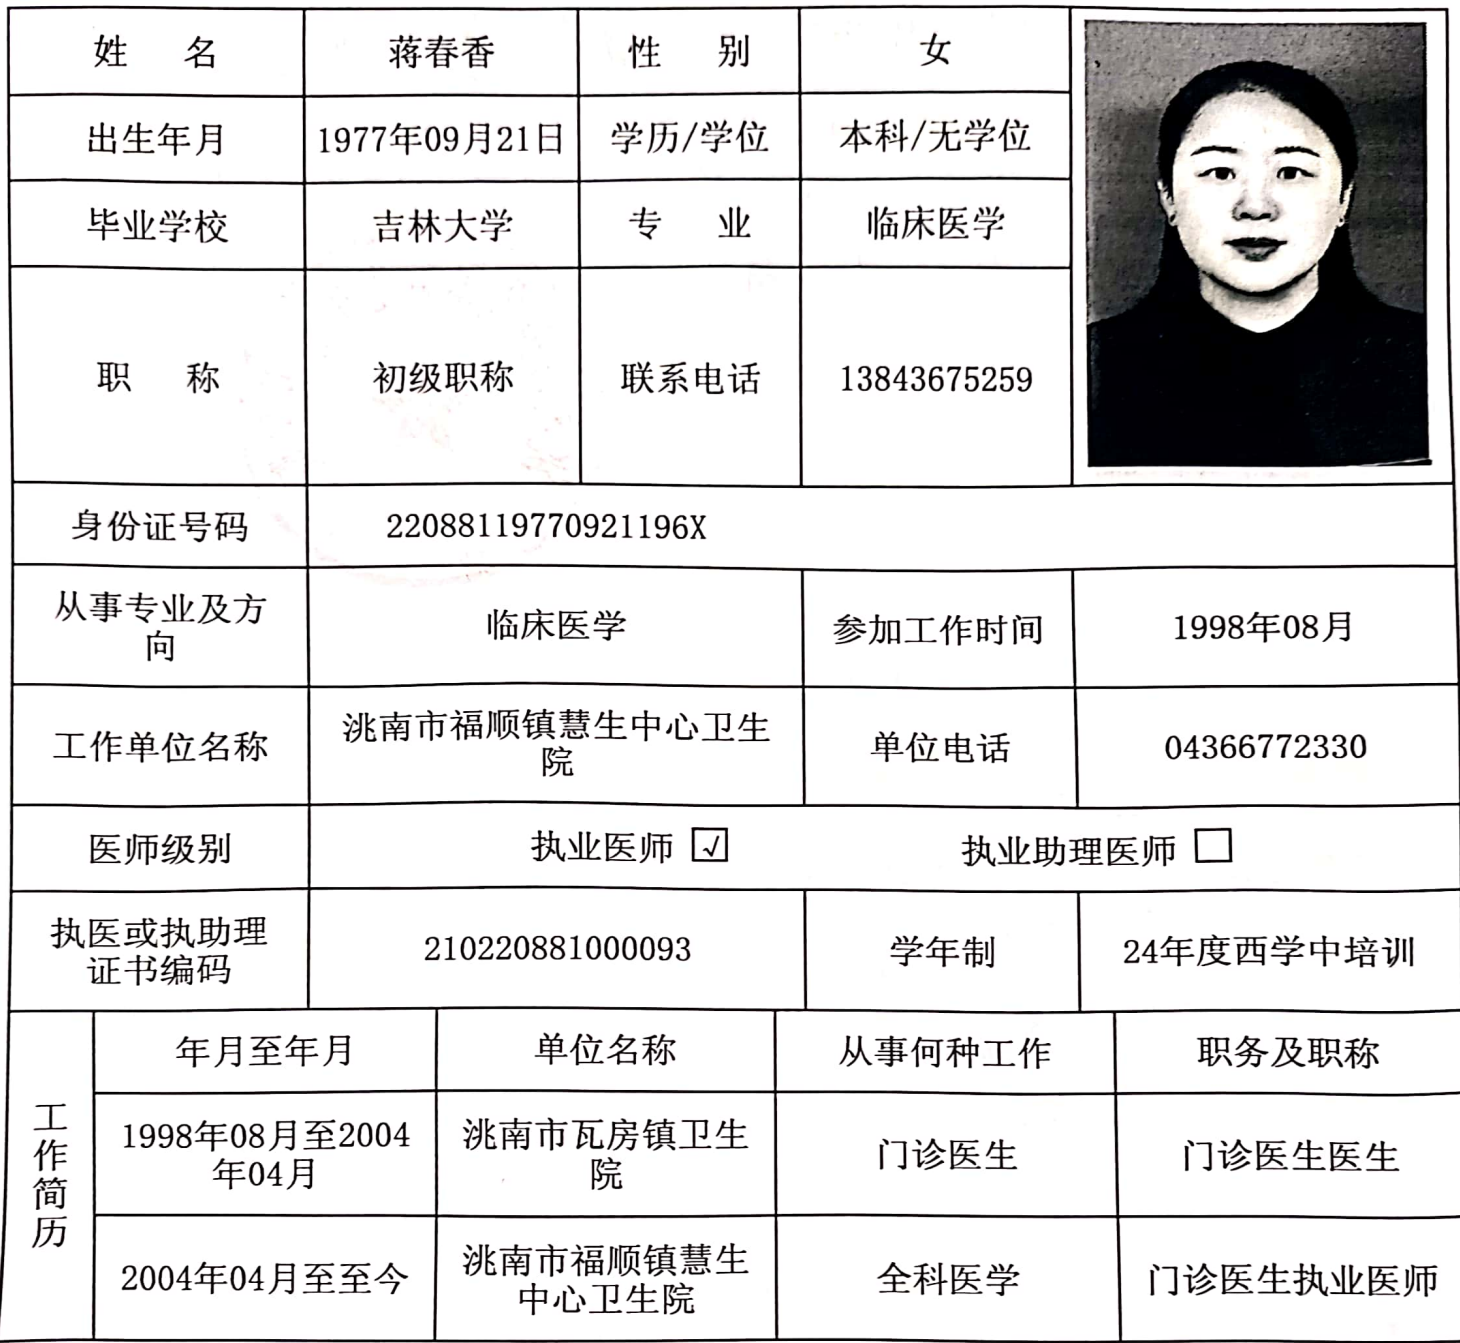 姓 名 蒋春香 性 别 女
出生年月 1977年09月21日 学历/学位 本科/无学位
毕业学校 吉林大学 专 业 临床医学
职 称 初级职称 联系电话 13843675259
身份证号码 22088119770921196X
从事专业及方
向
临床医学 参加工作时间 1998年08月
工作单位名称
洮南市福顺镇慧生中心卫生
院
单位电话 04366772330
医师级别 执业医师 ☑ 执业助理医师 □
执医或执助理
证书编码
210220881000093 学年制 24年度西学中培训
工作简历
年月至年月 单位名称 从事何种工作 职务及职称
1998年08月至2004
年04月
洮南市瓦房镇卫生
院
门诊医生 门诊医生医生
2004年04月至至今
洮南市福顺镇慧生
中心卫生院
全科医学 门诊医生执业医师